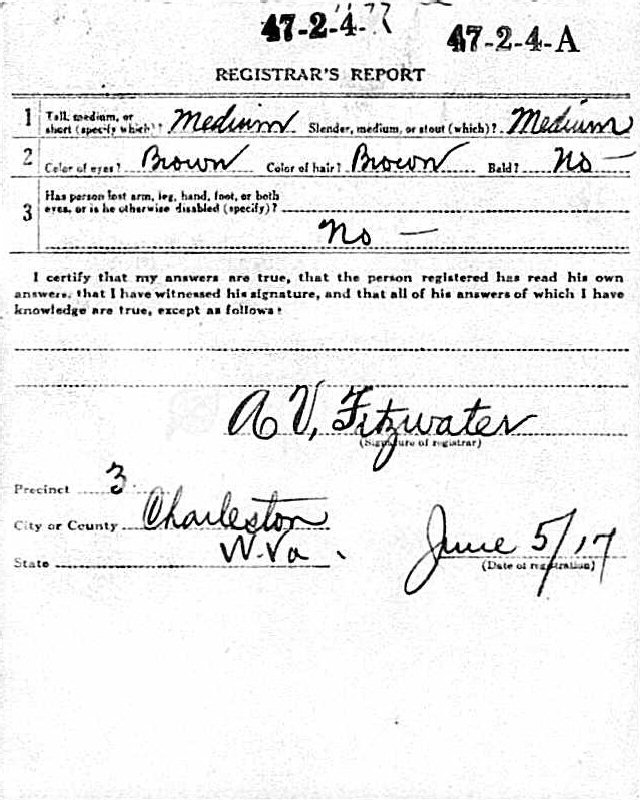 47-2-4-
47-2-4-A
REGISTRAR'S REPORT
1 Tall, medium, or short (specify which)? Medium Slender, medium, or stout (which)? Medium
2 Color of eyes? Brown Color of hair? Brown Bald? No —
3 Has person lost arm, leg, hand, foot, or both
eyes, or is he otherwise disabled (specify)?
No —
I certify that my answers are true, that the person registered has read his own
answers, that I have witnessed his signature, and that all of his answers of which I have
knowledge are true, except as follows:
A V, Fitzwater
(Signature of registrar)
Precinct 3
City or County Charleston
State W. Va.
June 5/17
(Date of registration)